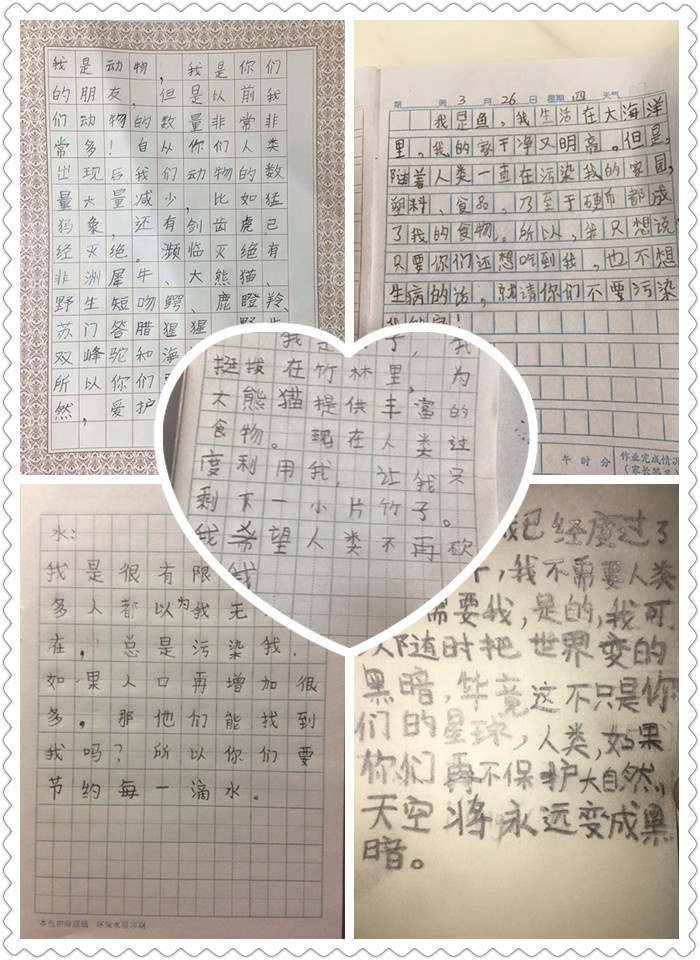 我是动物，我是你们
的朋友，但是以前我
们动物的数量非常非
常多！自从你们人类
出现后我们动物的数
量大量减少，比如猛
犸象，还有剑齿虎已
经灭绝。濒临灭绝有
非洲犀牛、大熊猫、
野生短吻鳄、鹿瞪羚、
苏门答腊猩猩
双峰驼和海
所以你们
然，爱护
3月26日 星期四 天气
我是鱼，我生活在大海洋
里，我的家干净又明亮。但是，
随着人类一直在污染我的家园，
塑料、食品，乃至于硬币都成
了我的食物。所以，我只想说，
只要你们还想吃到我，也不想
生病的话，就请你们不要污染
午 时 分 作业完成情
子，我
挺拔在竹林里，为
大熊猫提供丰富的
食物。现在人类过
度利用我，让我只
剩下一小片竹子。
我希望人类不再砍
我
水：
我是很有限
多人都以为我无
在，总是污染我.
如果人口再增加很
多，那他们能找到
我吗？所以你们要
节约每一滴水。
本色护眼纸张 环保水墨印刷
我已经度过了
，我不需要人类
需要我，是的，我可
随时把世界变的
黑暗，毕竟这不只是你
们的星球，人类，如果
你们再不保护大自然，
天空将永远变成黑
暗。